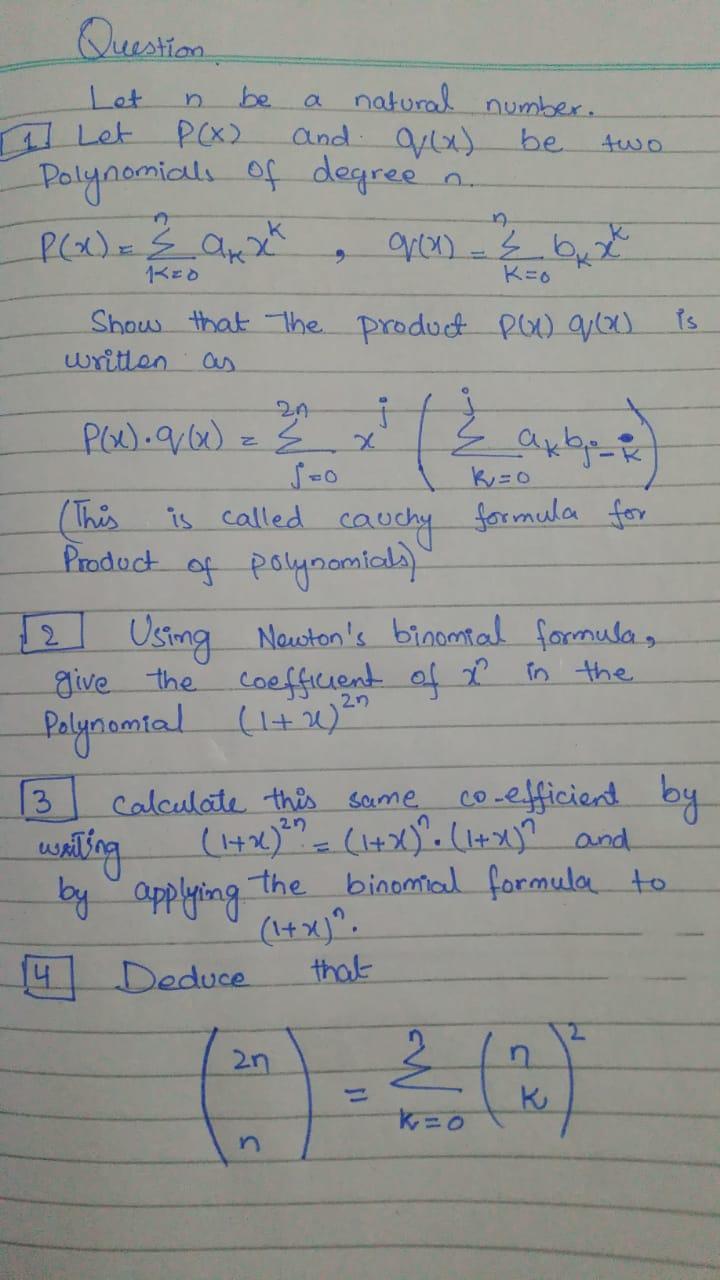 Question
Let n be a natural number.
1 Let P(x) and q(x) be two
Polynomials of degree n.
P(x) = Σ_{k=0}^{n} a_k x^k , q(x) = Σ_{k=0}^{n} b_k x^k
Show that The product p(x) q(x) is
written as
P(x).q(x) = Σ_{j=0}^{2n} x^j ( Σ_{k=0}^{j} a_k b_{j-k} )
(This is called cauchy formula for
Product of polynomials)
2 Using Newton's binomial formula,
give the coefficient of x^n in the
Polynomial (1+x)^{2n}
3 Calculate this same co-efficient by
writing (1+x)^{2n} = (1+x)^n . (1+x)^n and
by applying the binomial formula to
(1+x)^n.
4 Deduce that
(2n n) = Σ_{k=0}^{n} (n k)^2